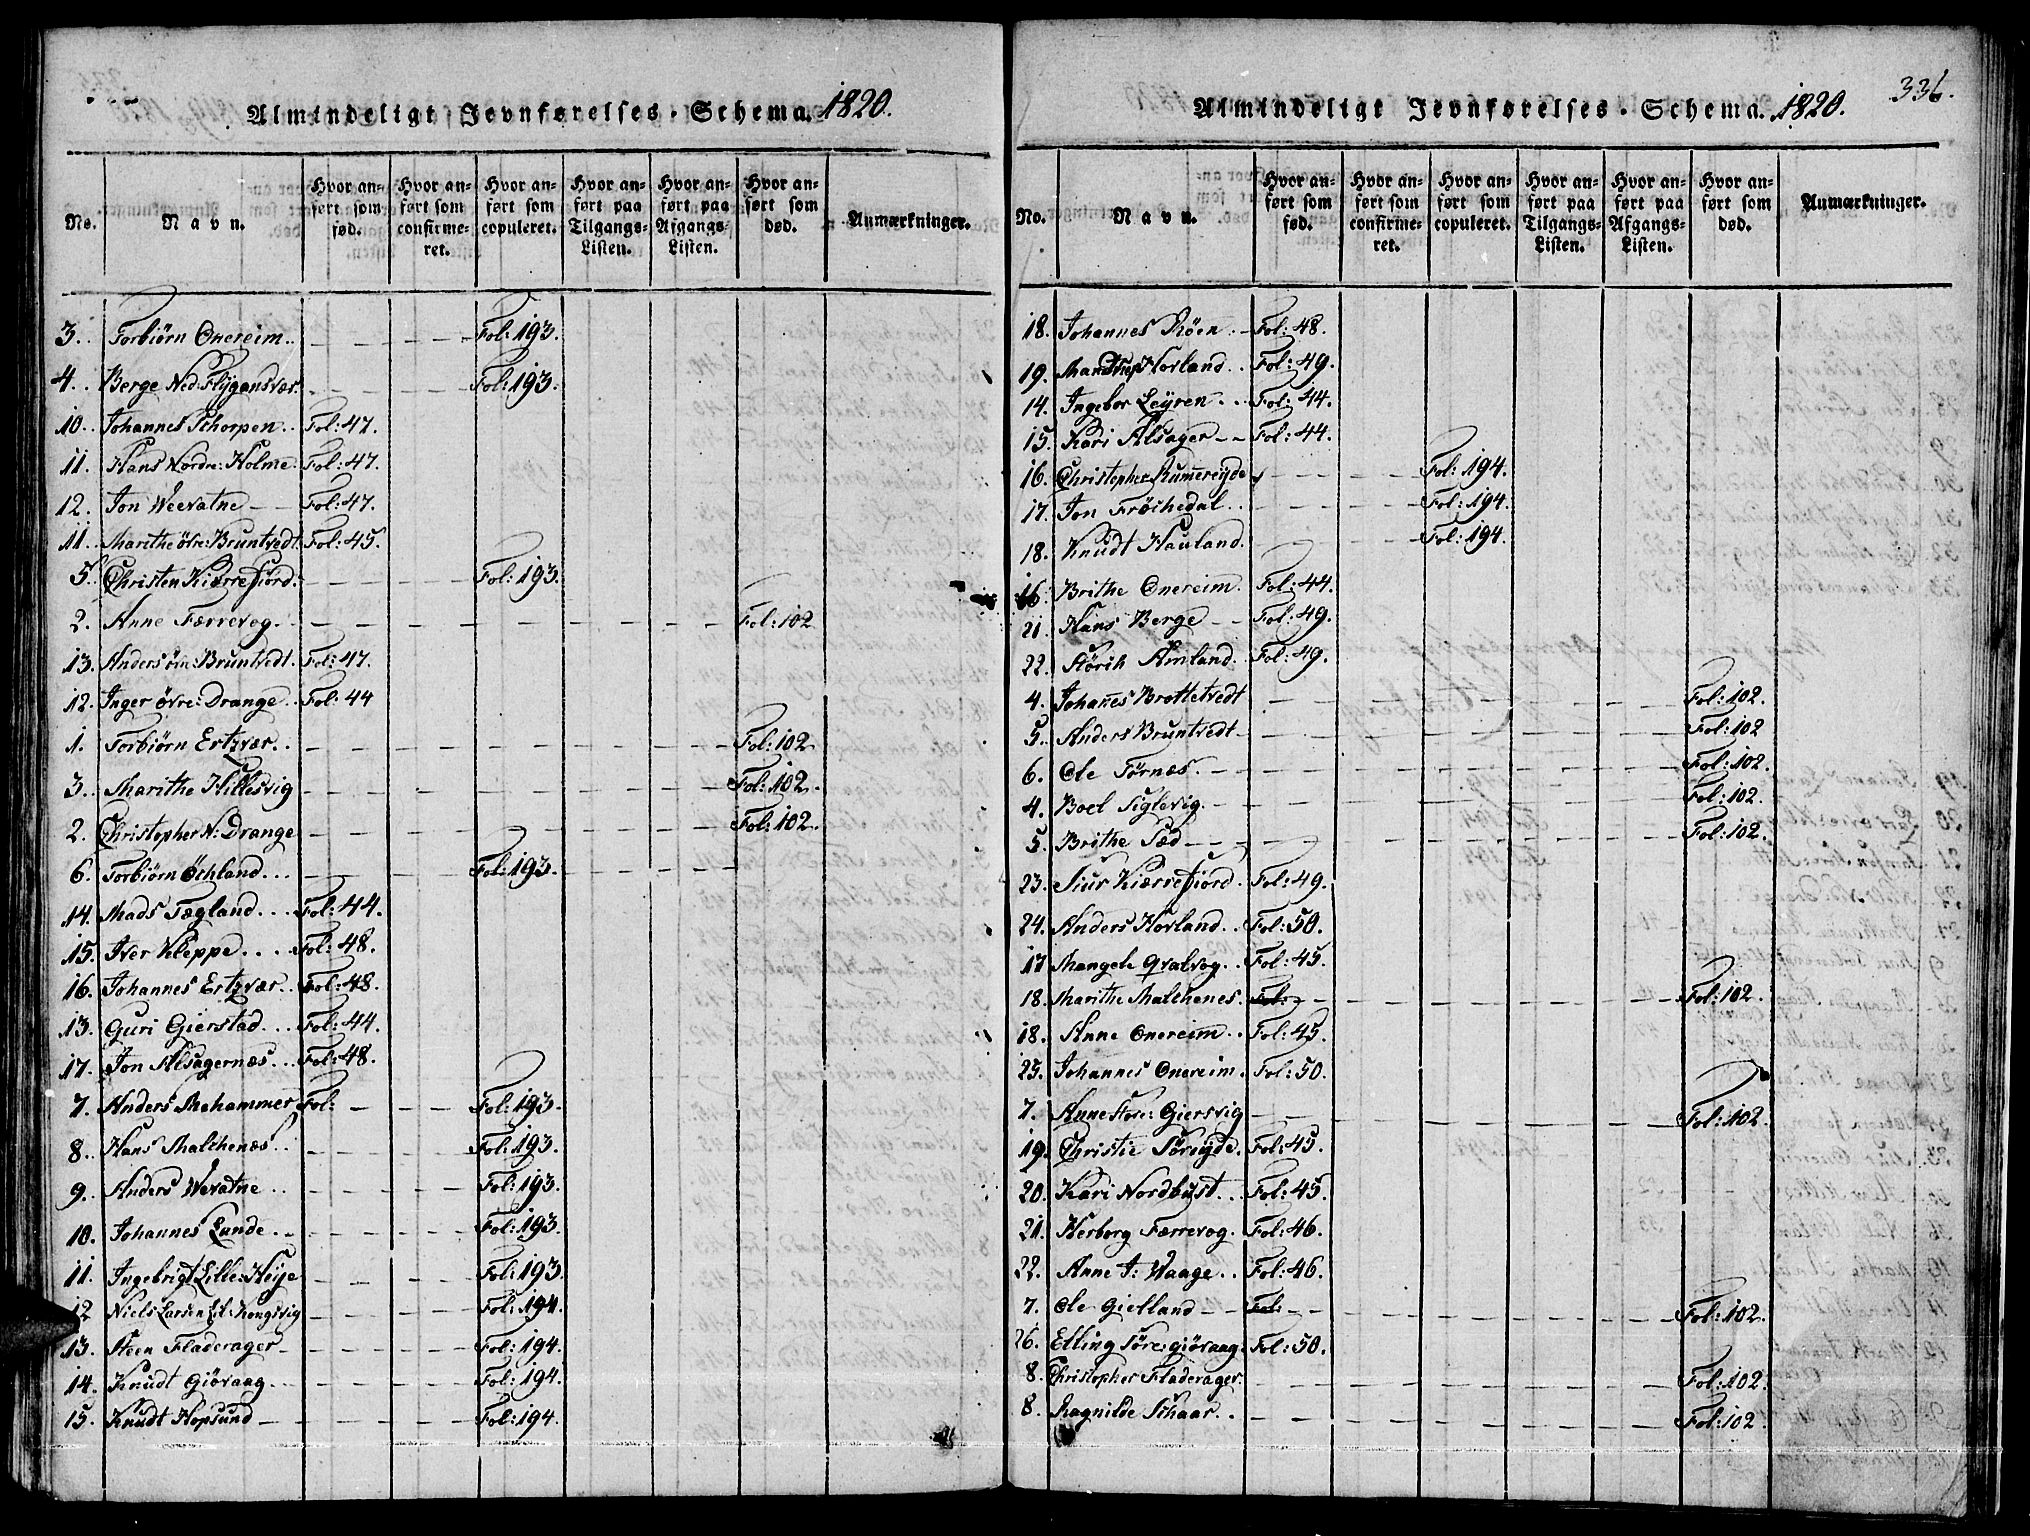 Almindeligt Jevnførelses-Schema. 1820.
No. Navn. Hvor anført som fød. Hvor anført som confirmeret. Hvor anført som copuleret. Hvor anført paa Tilgangs-Listen. Hvor anført paa Afgangs-Listen. Hvor anført som død. Anmærkninger.
3. Torbiörn Onereim. Fol: 193.
4. Berge Ned: Flygansvær Fol: 193.
10. Johannes Schorpen. Fol: 47.
11. Hans Nordre: Holme. Fol: 47.
12. Jon Weevatne Fol: 47.
11. Marithe övre: Bruntvedt. Fol: 45.
5. Christen Kierrefiord. Fol: 193.
2. Anne Færrevog. Fol: 102
13. Anders övre: Bruntvedt. Fol: 47.
12. Inger övre: Drange. Fol: 44
1. Torbiörn Ertzvær. Fol: 102.
3. Marithe Hillesvig Fol: 102.
2. Christopher N: Drange Fol: 102.
6. Torbiörn Öchland. Fol: 193.
14. Mads Tægland. Fol: 44.
15. Iver Kleppe. Fol: 48.
16. Johannes Ertzvær. Fol: 48.
13. Guri Gierstad. Fol: 44.
17. Jon Alsagernæs. Fol: 48.
7. Anders Mehammer Fol: Fol: 193.
8. Hans Malchenæs. Fol: 193.
9. Anders Wevatne Fol: 193.
10. Johannes Lunde. Fol: 193.
11. Ingebrigt Lille: Høje Fol: 193.
12 Niels Larsen til: Kongsvig Fol: 194.
13. Steen Fladerager Fol: 194.
14. Knudt Giöraag Fol: 194.
15. Knudt Hopsund Fol: 194.
Almindeligt Jevnførelses-Schema. 1820. 336.
No. Navn. Hvor anført som fød. Hvor anført som confirmeret. Hvor anført som copuleret. Hvor anført paa Tilgangs-Listen. Hvor anført paa Afgangs-Listen. Hvor anført som død. Anmærkninger.
18. Johannes Röen Fol: 48.
19. Mandrup Hovland. Fol: 49.
14. Ingebor Leyren. Fol: 44.
15. Kari Alsager Fol: 44.
16. Christopher Rumereyde Fol: 194.
17. Jon Fröchedal Fol: 194.
18. Knudt Hauland. Fol: 194.
16. Brithe Onereim. Fol: 44.
21. Hans Berge Fol: 49.
22. Störch Amland. Fol: 49.
4. Johannes Brottetvedt Fol: 102.
5. Anders Bruntvedt Fol: 102
6. Ole Törnæs. Fol: 102.
4. Boel Siglevig. Fol: 102.
5. Brithe Sæd Fol: 102.
23. Siur Kiærrefiord. Fol: 49.
24. Anders Hovland. Fol: 50.
17 Mangele Qvalvog. Fol: 45.
18. Marithe Malchenes. Fol: Fol: 102.
18. Anne Onereim Fol: 45.
25. Johannes Onereim. Fol: 50.
7. Anne Store: Giersvig Fol: 102.
19. Christie Söreyde. Fol: 45.
20. Kari Nordhust. Fol: 45.
21. Herborg Færrevog. Fol: 46.
22. Anne J: Waage. Fol: 46.
7. Ole Gielland Fol: Fol: 102.
26. Elling Söre: giöraag. Fol: 50.
8. Christopher Fladerager. Fol: 102.
8. Ragnilde Schaar. Fol: 102.